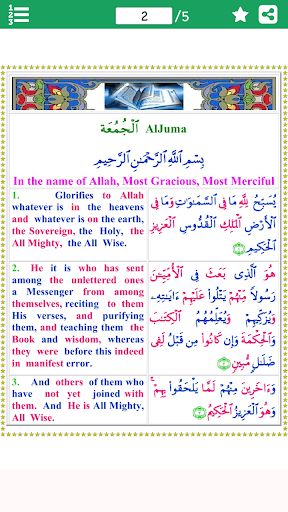 1
2
3
2 /5
ٱلْجُمُعَة AlJuma
بِسْمِ ٱللَّهِ ٱلرَّحْمَـٰنِ ٱلرَّحِيمِ
In the name of Allah, Most Gracious, Most Merciful
1. Glorifies to Allah
whatever is in the heavens
and whatever is on the earth,
the Sovereign, the Holy, the
All Mighty, the All Wise.
يُسَبِّحُ لِلَّهِ مَا فِى ٱلسَّمَـٰوَٰتِ وَمَا فِى
ٱلْأَرْضِ ٱلْمَلِكِ ٱلْقُدُّوسِ ٱلْعَزِيزِ
ٱلْحَكِيمِ ۝١
2. He it is who has sent
among the unlettered ones
a Messenger from among
themselves, reciting to them
His verses, and purifying
them, and teaching them the
Book and wisdom, whereas
they were before this indeed
in manifest error.
هُوَ ٱلَّذِى بَعَثَ فِى ٱلْأُمِّيِّـۧنَ
رَسُولًا مِّنْهُمْ يَتْلُوا۟ عَلَيْهِمْ ءَايَـٰتِهِۦ
وَيُزَكِّيهِمْ وَيُعَلِّمُهُمُ ٱلْكِتَـٰبَ
وَٱلْحِكْمَةَ وَإِن كَانُوا۟ مِن قَبْلُ لَفِى
ضَلَـٰلٍ مُّبِينٍ ۝٢
3. And others of them who
have not yet joined with
them. And He is All Mighty,
All Wise.
وَءَاخَرِينَ مِنْهُمْ لَمَّا يَلْحَقُوا۟ بِهِمْ ۚ
وَهُوَ ٱلْعَزِيزُ ٱلْحَكِيمُ ۝٣